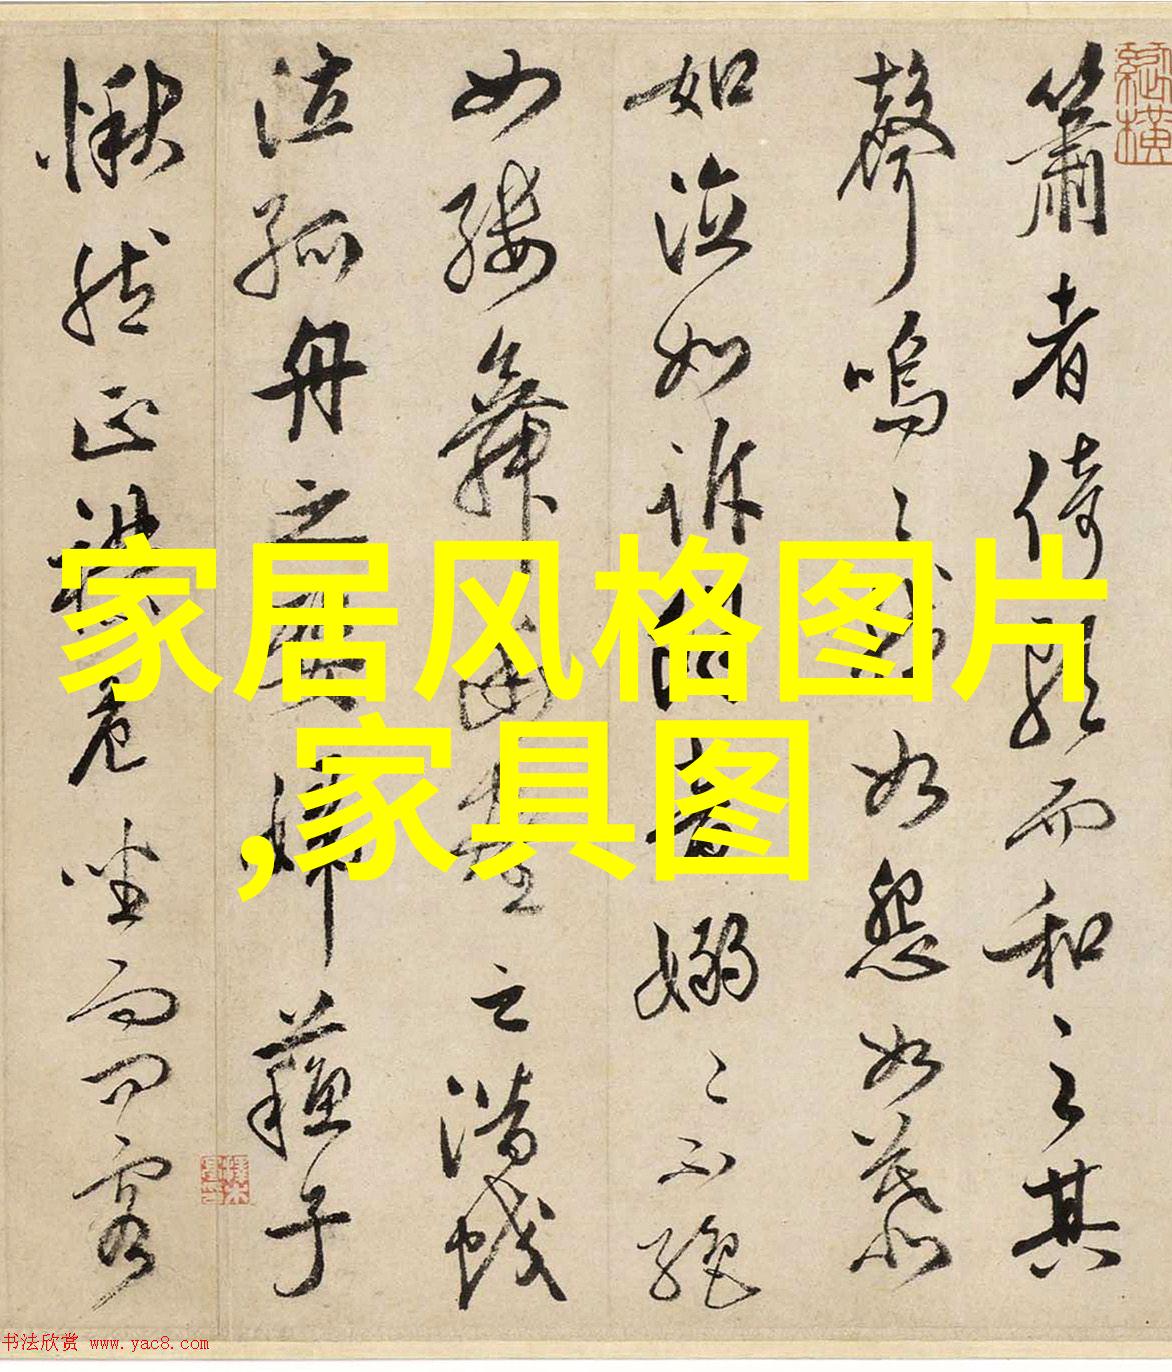 簫者倚歌而和之其
聲嗚〻然如怨如慕
如泣如訴餘音嫋〻不絕
如縷舞幽壑之潛蛟
泣孤舟之嫠婦蘇子
愀然正襟危坐而問客
家居风格图片
,家具图
书法欣赏 www.yac8.com